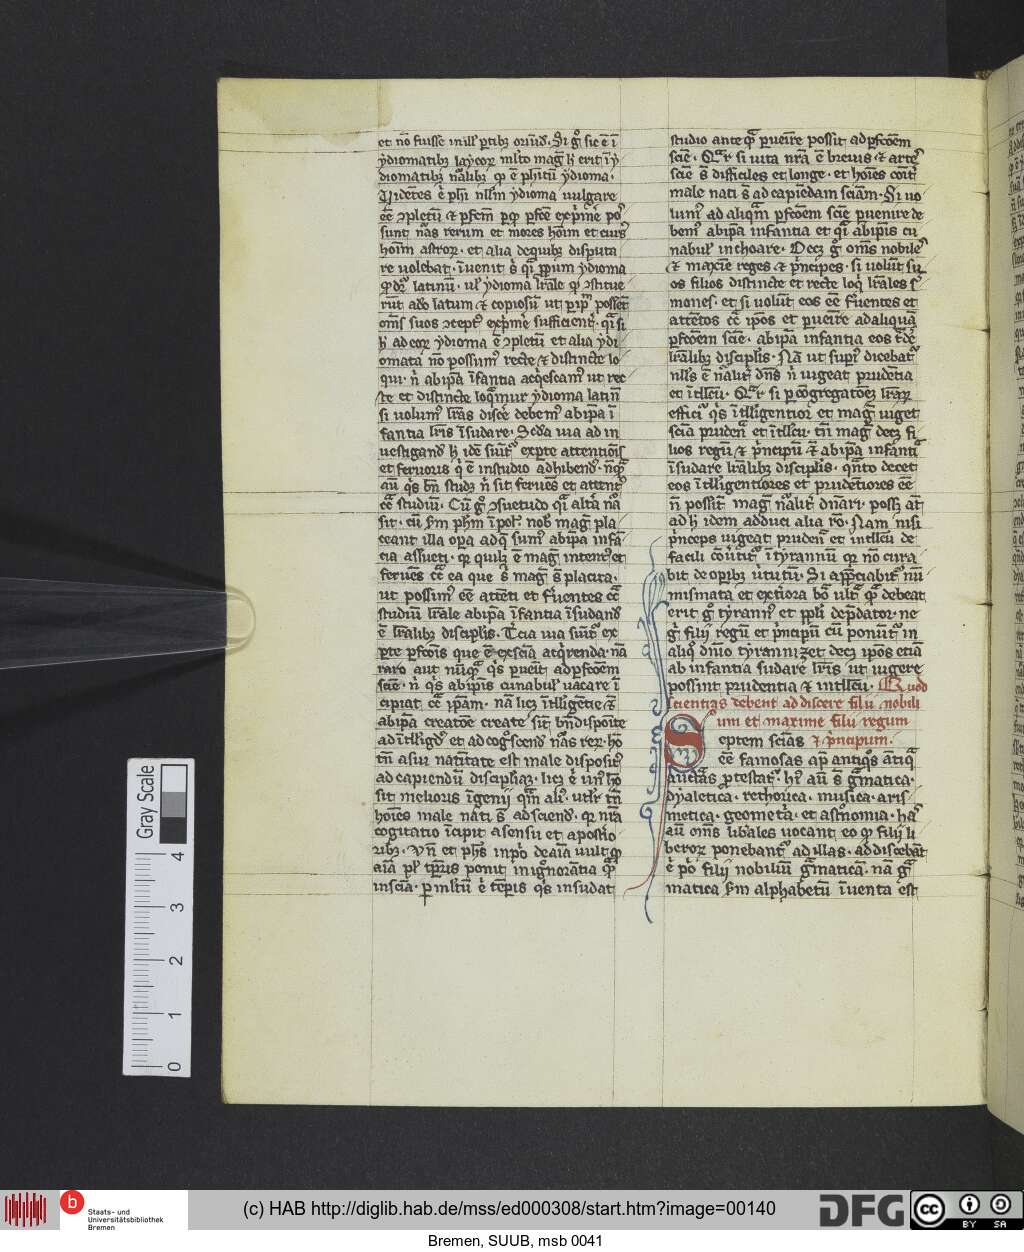 et nō fuisse in illis ꝑtibꝫ oriūd. Si gͦ sic ē ī
ydiomatibꝫ laycoꝝ mlto mag̅ h̅ erit ī y
diomatibꝫ nālibꝫ ꝙ ē phitū ydioma.
Uidētes .n. phi nllm ydioma uulgare
ēē ꝯpletū et ꝑfcm ꝑ qd ꝑfcē exp̄mē pos
sunt nās rerum et mores hōim et cursꝰ
hōim astroꝝ. et alia de quibꝫ disputa
re uolebāt. īuenit s̄ qͣi ꝓpum ydioma
qd dr̄ latinū. ul̓ ydioma lrāle qd ꝯstitue
rūt adeo latum et copiosū ut ꝑ ipm possent
oms̄ suos ꝯceptꝰ exp̄mē sufficient̓. qͣi si
h̄ ad eoꝝ ydioma ē ꝯpletū et alia ydi
omata nō possumꝰ recte et distincte lo
qui. n̄ ab ipā īfantia acqͥescamꝰ ut rec
te et distincte loqͣmur ydioma latinū
si uolumꝰ lrās discē debemꝰ ab ipā ī
fantia lrīs īsudare. Scda uia ad in
uestigand h̄ idē sumit̓ ex ꝑte attentionis
et feruoris qͥ ē in studio adhibendꝰ. nūqͣ
aū qͥs bn̄ studꝫ n̄ sit feruēs et attentꝰ
cͣ studiū. Cū gͦ ꝯsuetudo qͣi altͣ nā
sit. cū scdm phm ī pol. nob̓ mag̅ pla
ceant illa opa ad qͣ sumꝰ ab ipā infā
tia assueti. qͣ quilꝫ ē mag̅ intentꝰ et
feruēs cͣ ea que s̄ mag̅ s̄ placita.
ut possimꝰ ēē attēti et fruentes cͣ
studiū lrāle ab ipā īfantia īsudand
ē lrālibꝫ disciplīs. Tͥcia uia sumit̓ ex
ꝑte ꝑfcōīs que ē ex sciā acqͥrenda. nā
raro aut nūqͣ qͥs ꝑuēit ad ꝑfcōem
sciē. n̄ qͥs ab ipīs cunabulꝰ uacare ī
cipiat cͣ ipam. nā licꝫ ītlligētie
ab ipā creatōe create sint bn̄ disposite
ad ītlligdꝰ et ad cogͦscend nās reꝝ. hō
tn̄ a sui natiuitate est male dispositꝰ
ad capiendū disciplinaꝫ. licꝫ .n. unꝰ hō
sit melioris īgenii qͣm aliꝰ. utlr̄ tn̄
hoīes male nati s̄ ad sciend. qꝛ nrā
cogitatio īcipit a sensu et a posterio
ribꝫ. Vn̄ et phs̄ in pͦ de aīa uult qd
aīa pl̓ tꝑis ponit in ignorātia qͣ
in sciā. ꝑ multū .n. tꝑis qͥs insudat
studio ante qͣ ꝑueīre possit ad ꝑfcōem
sciē. Qͣr si uita nrā ē breuis et artes
sciē s̄ difficiles et longe. et hoīes cōit̓
male nati s̄ ad capiēdam sciām. Si uo
lumꝰ ad aliqͣm ꝑfcōem sciē ꝑuenire de
bemꝰ ab ipā infantia et qͣi ab ipīs cu
nabulꝰ inchoare. Decꝫ gͦ oms̄ nobiles
et maxīe reges et pͥncipes. si uolūt su
os filios distincte et recte loqͥ lrāles s̓
mones. et si uolūt eos ēē fruentes et
attētos cͣ ipos et ꝑueīre ad aliquā
ꝑfcōem sciē. ab ipā infantia eos tͣdē
lrālibꝫ disciplīs. Nā ut supͥ dicebat̓
nllꝰ ē nālit̓ dns̄ n̄ uigeat prudētia
et ītllcū. Qͣr si ꝑ cōgregatōeꝫ lrāꝝ
efficit̓ qͥs ītlligentior et mag̅ uiget
sciā prudenͣ et ītllcu. tn̄ mag̅ decꝫ fi
lios regū et pͥncipū ab ipā infantia
īsudare lrālibꝫ disciplīs. qͣnto decet
eos ītlligentiores et prudētiores ēē
n̄ possūt mag̅ nālit̓ dnāri. possꝫ at̄
ad h̄ idem adduci alia rͦ. Nam nisi
pͥnceps uigeat prudenͣ et intllcu de
facili cōu̓tit̓ ī tyrannū qꝛ nō cura
bit de oꝑibꝫ uͥtutū. Si appciabit̓ nu
mismata et exteriora bōa ultͣ qͣ debeat
erit gͦ tyrannꝰ et ppli depͥdator. ne
gͦ filii regū et pͥncipū cū ponūt̓ in
aliqͦ dnīo tyrannizēt decꝫ ipos etiā
ab infantia sudare lrīs ut uigere
possint prudentia et intllcu. Quod
scientias debent addiscere filii nobili
um et maxime filii regum
Septem sciās et pͥncipum.
ēē famosas apͥ antiqͥs ātiqͣ
auctās ꝓtestat̓. hꝰ aū s̄ gͣmatica.
dyaletica. rethorica. musica. aris
metica. geometͥa. et astͦnomia. has
aū oms̄ libales uocant eo qd filii li
beroꝝ ponebant̓ ad illas. addiscebāt
.n. pͦ filii nobiliū gͣmaticā. nā gͣ
matica scdm alphabetū īuenta est
Gray Scale
4
3
2
1
0
Staats- und
Universitätsbibliothek
Bremen
(c) HAB http://diglib.hab.de/mss/ed000308/start.htm?image=00140
DFG
cc
BY SA
Bremen, SUUB, msb 0041